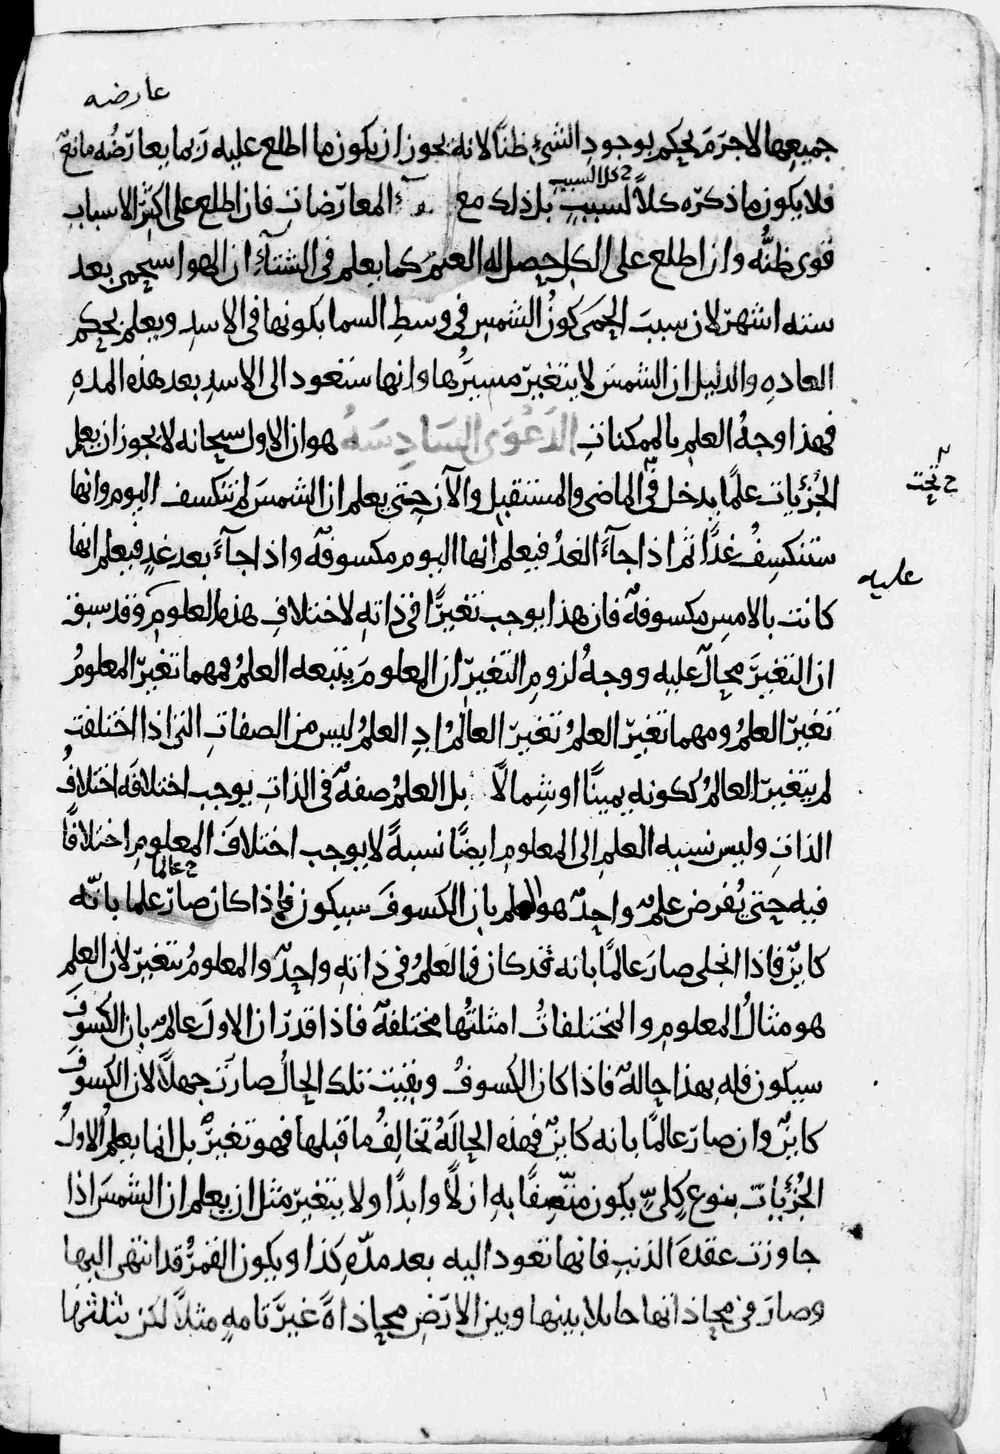 عارضه
جميعها لا جَرَمَ يحكم بوجودِ الشيءِ ظنًا لانهُ يجوز ان يكون ما اطلع عليه رَبما يعارَضُه مانعٌ
فلا يكون ما ذكرَه كلاً لسببٍ بل ذلك مع المعارَضات فان اطلع على اكثَر الاسباب
ح كلا السبب
قوى ظنُّه وان اطلع على الكل حصل له العلم كما يعلم في الشتآءِ ان الهوا سيحمى بعد
سته اشهرٍ لان سببَ الحِمَى كونُ الشمسِ في وسطِ السما بكونها في الاسدِ ويعلم بحكم
العادهِ والدليل ان الشمسَ لا يتغيرّ مسيرُها وانها ستعود الى الاسدِ بعد هذه المدهِ
فهذا وجهُ العلم بالممكناتِ الدَعْوَى السَادِسَهُ هو ان الاول سبحانه لا يجوز ان يعلم
الجُزْئيات علمًا يدخل في الماضي والمستقبل والآن حتى يعلم ان الشمسَ لم تنكسف اليوم وانها
ح تحت
ستنكسِفُ غدًا ثم اذا جآءَ الغدُ فيعلم انها اليوم مكسوفهٌ واذا جآءَ بعد غدٍ فيعلم انها
عليه
كانت بالامسِ مكسوفهٌ فان هذا يوجب تغيرًا في ذاتهِ لاختلافِ هذه العلومِ وقد سبق
ان التغيرَّ محالٌ عليهِ ووجهُ لزومِ التغيرّ ان المعلومَ يتبعه العلمُ فمهما تغيرّ المعلومُ
تغيرّ العلمُ ومهما تغيرّ العلمُ تغيرّ العالمُ اذِ العلمُ ليس من الصفاتِ التي اذا اختلفت
لم يتغيرّ العالمُ ككونه يمينًا او شمالاً بل العلمُ صفهٌ في الذاتِ يوجب اختلافَه اختلافُ
الذاتِ وليس نسبه العلمِ الى المعلومِ ايضًا نسبهً لا يوجب اختلافَ المعلومِ اختلافًا
فيه حتى يُفرض علمٌ واحدٌ هو العلم بان الكسوفَ سيكون فاذا كان صارَ علما بانّه
ح عالما
كاينٌ فاذا انجلى صارَ عالمًا بانه قد كان فالعلمُ في ذاتهِ واحدٌ والمعلومُ تتغيرّ لان العلم
هو مثالُ المعلومِ والمختلفاتُ امثلتُها مختلفهٌ فاذا قدرّ ان الاولَ عالمٌ بان الكسوفَ
سيكون فله بهذا حالهٌ فاذا كان الكسوفُ وبقيت تلك الحالُ صارَت جهلاً لان الكسوفَ
كاينٌ وان صارَ عالمًا بانه كاينٌ فهذه الحالهُ تخالِفُ ما قبلها فهو تغيرٌّ بل انما يعلم الاولُ
الجُزْئيات بنوعٍ كلىٍّ يكون متّصفًا بهِ ازلاً وابدًا ولا يتغيرّ مثل ان يعلم ان الشمسَ اذا
جاوزت عقدهَ الذنبِ فانها تعود اليه بعد مدّهِ كذا ويكون القمرُ قد انتهى اليها
وصارَ في محاذاتها حايلا بينها وبين الارضِ محاذاةً غيرَ تامهٍ مثلاً لكن بثلثها